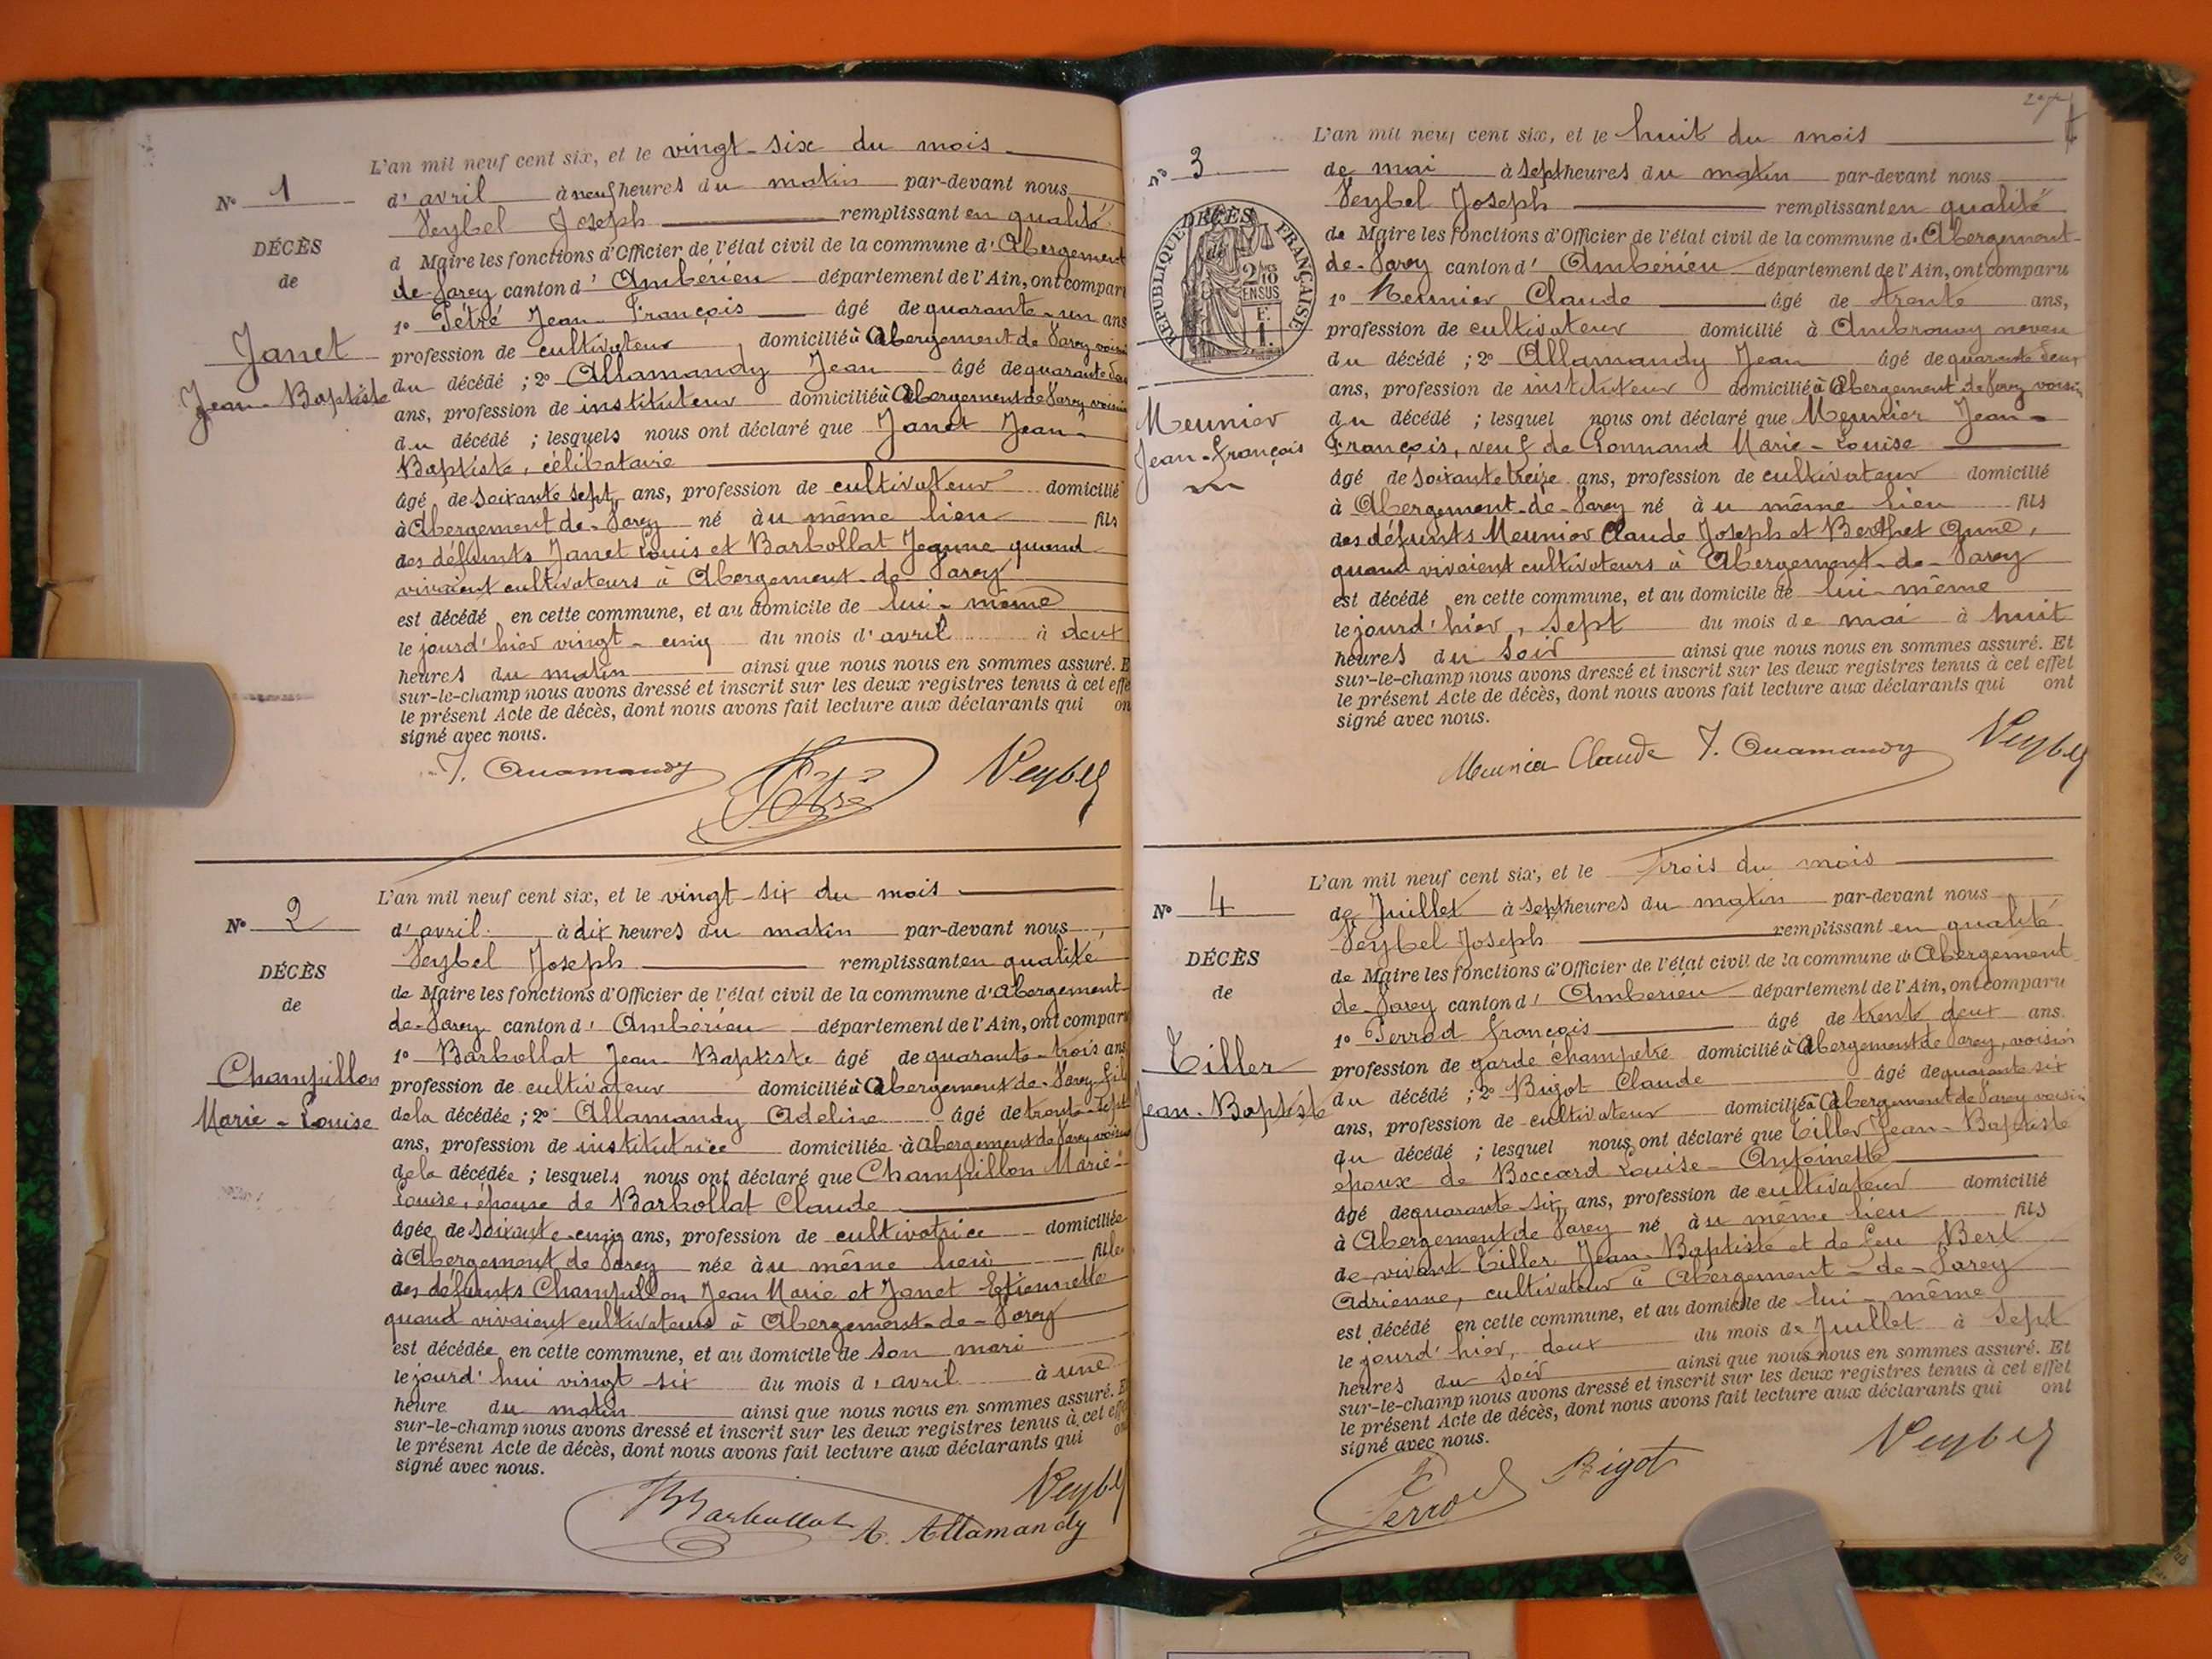 L'an mil neuf cent six, et le vingt-six du mois
N° 1
d'avril à neuf heures du matin par-devant nous
Veybel Joseph remplissant en qualité
DÉCÈS
d Maire les fonctions d'Officier de l'état civil de la commune d'Abergement
de
de-Varey canton d'Ambérieu département de l'Ain, ont compar
1° Pétré Jean François âgé de quarante-un ans
Janet
profession de cultivateur domicilié à Abergement de Varey voisin
Jean-Baptiste
du décédé ; 2° Allamandy Jean âgé de quarante deu
ans, profession de instituteur domicilié à Abergement de Varey voisin
du décédé ; lesquels nous ont déclaré que Janet Jean-
Baptiste, célibataire
âgé de soixante sept ans, profession de cultivateur domicilié
à Abergement de-Varey né àu même lieu fils
des défunts Janet Louis et Barbollat Jeanne quand
vivaient cultivateurs à Abergement-de-Varey
est décédé en cette commune, et au domicile de lui-même
le jourd'hier vingt-cinq du mois d'avril à deux
heures du matin ainsi que nous nous en sommes assuré. E
sur-le-champ nous avons dressé et inscrit sur les deux registres tenus à cet effe
le présent Acte de décès, dont nous avons fait lecture aux déclarants qui on
signé avec nous.
J. Allamandy Pétré Veybel
L'an mil neuf cent six, et le vingt-six du mois
N° 2
d'avril à dix heures du matin par-devant nous
Veybel Joseph remplissant en qualité
DÉCÈS
de Maire les fonctions d'Officier de l'état civil de la commune d'Abergement
de
de-Varey canton d'Ambérieu département de l'Ain, ont compar
1° Barbollat Jean-Baptiste âgé de quarante-trois ans
Champillon
profession de cultivateur domicilié à Abergement de-Varey fils
Marie-Louise
de la décédée ; 2° Allamandy Adeline âgé de trente-sept
ans, profession de institutrice domiciliée à Abergement de Varey voisine
de la décédée ; lesquels nous ont déclaré que Champillon Marie-
Louise, épouse de Barbollat Claude
âgée de soixante-cinq ans, profession de cultivatrice domiciliée
à Abergement de Varey née àu même lieu fille
des défunts Champillon Jean Marie et Janet Etiennette
quand vivaient cultivateurs à Abergement-de-Varey
est décédée en cette commune, et au domicile de son mari
le jourd'hui vingt-six du mois d'avril à une
heure du matin ainsi que nous nous en sommes assuré. E
sur-le-champ nous avons dressé et inscrit sur les deux registres tenus à cet effe
le présent Acte de décès, dont nous avons fait lecture aux déclarants qui on
signé avec nous.
Barbollat A. Allamandy Veybel
L'an mil neuf cent six, et le huit du mois
N° 3
de mai à sept heures du matin par-devant nous
Veybel Joseph remplissant en qualité
DÉCÈS
de
RÉPUBLIQUE FRANÇAISE
2/10 EN SUS
F. 1.
de Maire les fonctions d'Officier de l'état civil de la commune d'Abergement-
de-Varey canton d'Ambérieu département de l'Ain, ont comparu
1° Meunier Claude âgé de trente ans,
profession de cultivateur domicilié à Ambronay neveu
du décédé ; 2° Allamandy Jean âgé de quarante deux
ans, profession de instituteur domicilié à Abergement de Varey voisin
Meunier
Jean-François
du décédé ; lesquel nous ont déclaré que Meunier Jean-
François, veuf de Bonnand Marie-Louise
âgé de soixante treize ans, profession de cultivateur domicilié
à Abergement-de-Varey né àu même lieu fils
des défunts Meunier Claude Joseph et Berthet Anne,
quand vivaient cultivateurs à Abergement-de-Varey
est décédé en cette commune, et au domicile de lui-même
le jourd'hier, sept du mois de mai à huit
heures du soir ainsi que nous nous en sommes assuré. Et
sur-le-champ nous avons dressé et inscrit sur les deux registres tenus à cet effet
le présent Acte de décès, dont nous avons fait lecture aux déclarants qui ont
signé avec nous.
Meunier Claude J. Allamandy Veybel
L'an mil neuf cent six, et le trois du mois
N° 4
de Juillet à sept heures du matin par-devant nous
Veybel Joseph remplissant en qualité
DÉCÈS
de Maire les fonctions d'Officier de l'état civil de la commune d'Abergement
de
de-Varey canton d'Ambérieu département de l'Ain, ont comparu
1° Perrod François âgé de trente deux ans.
Tiller
profession de garde champêtre domicilié à Abergement de Varey, voisin
Jean-Baptiste
du décédé ; 2° Bigot Claude âgé de quarante six
ans, profession de cultivateur domicilié à Abergement de Varey voisin
du décédé ; lesquel nous ont déclaré que Tiller Jean-Baptiste
époux de Boccard Louise-Antoinette
âgé de quarante-six ans, profession de cultivateur domicilié
à Abergement de Varey né àu même lieu fils
de vivant Tiller Jean-Baptiste et de feu Bert
Adrienne, cultivateur à Abergement-de-Varey
est décédé en cette commune, et au domicile de lui-même
le jourd'hier, deux du mois de Juillet à sept
heures du soir ainsi que nous nous en sommes assuré. Et
sur-le-champ nous avons dressé et inscrit sur les deux registres tenus à cet effet
le présent Acte de décès, dont nous avons fait lecture aux déclarants qui ont
signé avec nous.
Perrod Bigot Veybel